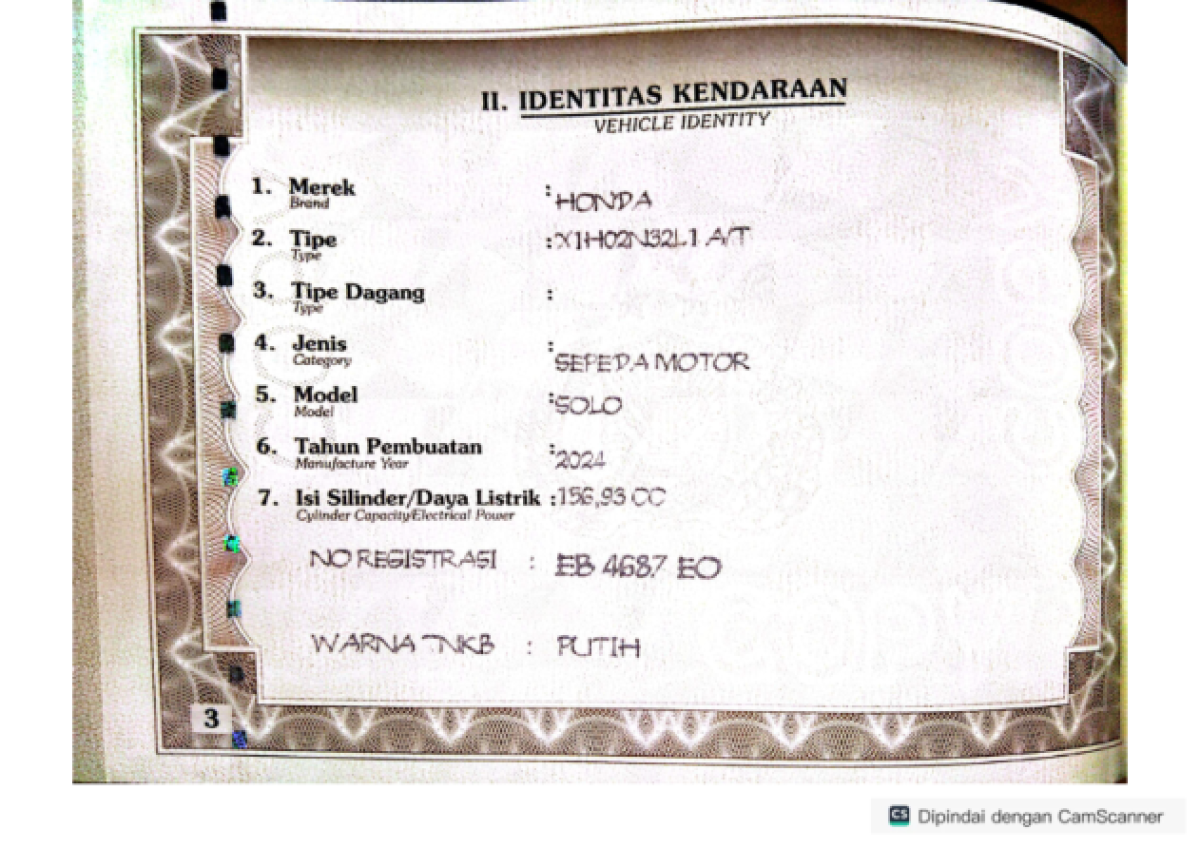 II. IDENTITAS KENDARAAN
VEHICLE IDENTITY
1. Merek : HONDA
Brand
2. Tipe : X1H02N32L1 A/T
Type
3. Tipe Dagang :
Type
4. Jenis : SEPEDA MOTOR
Category
5. Model : SOLO
Model
6. Tahun Pembuatan : 2024
Manufacture Year
7. Isi Silinder/Daya Listrik : 156,93 CC
Cylinder Capacity/Electrical Power
NO REGISTRASI : EB 4687 EO
WARNA TNKB : PUTIH
3
CS Dipindai dengan CamScanner